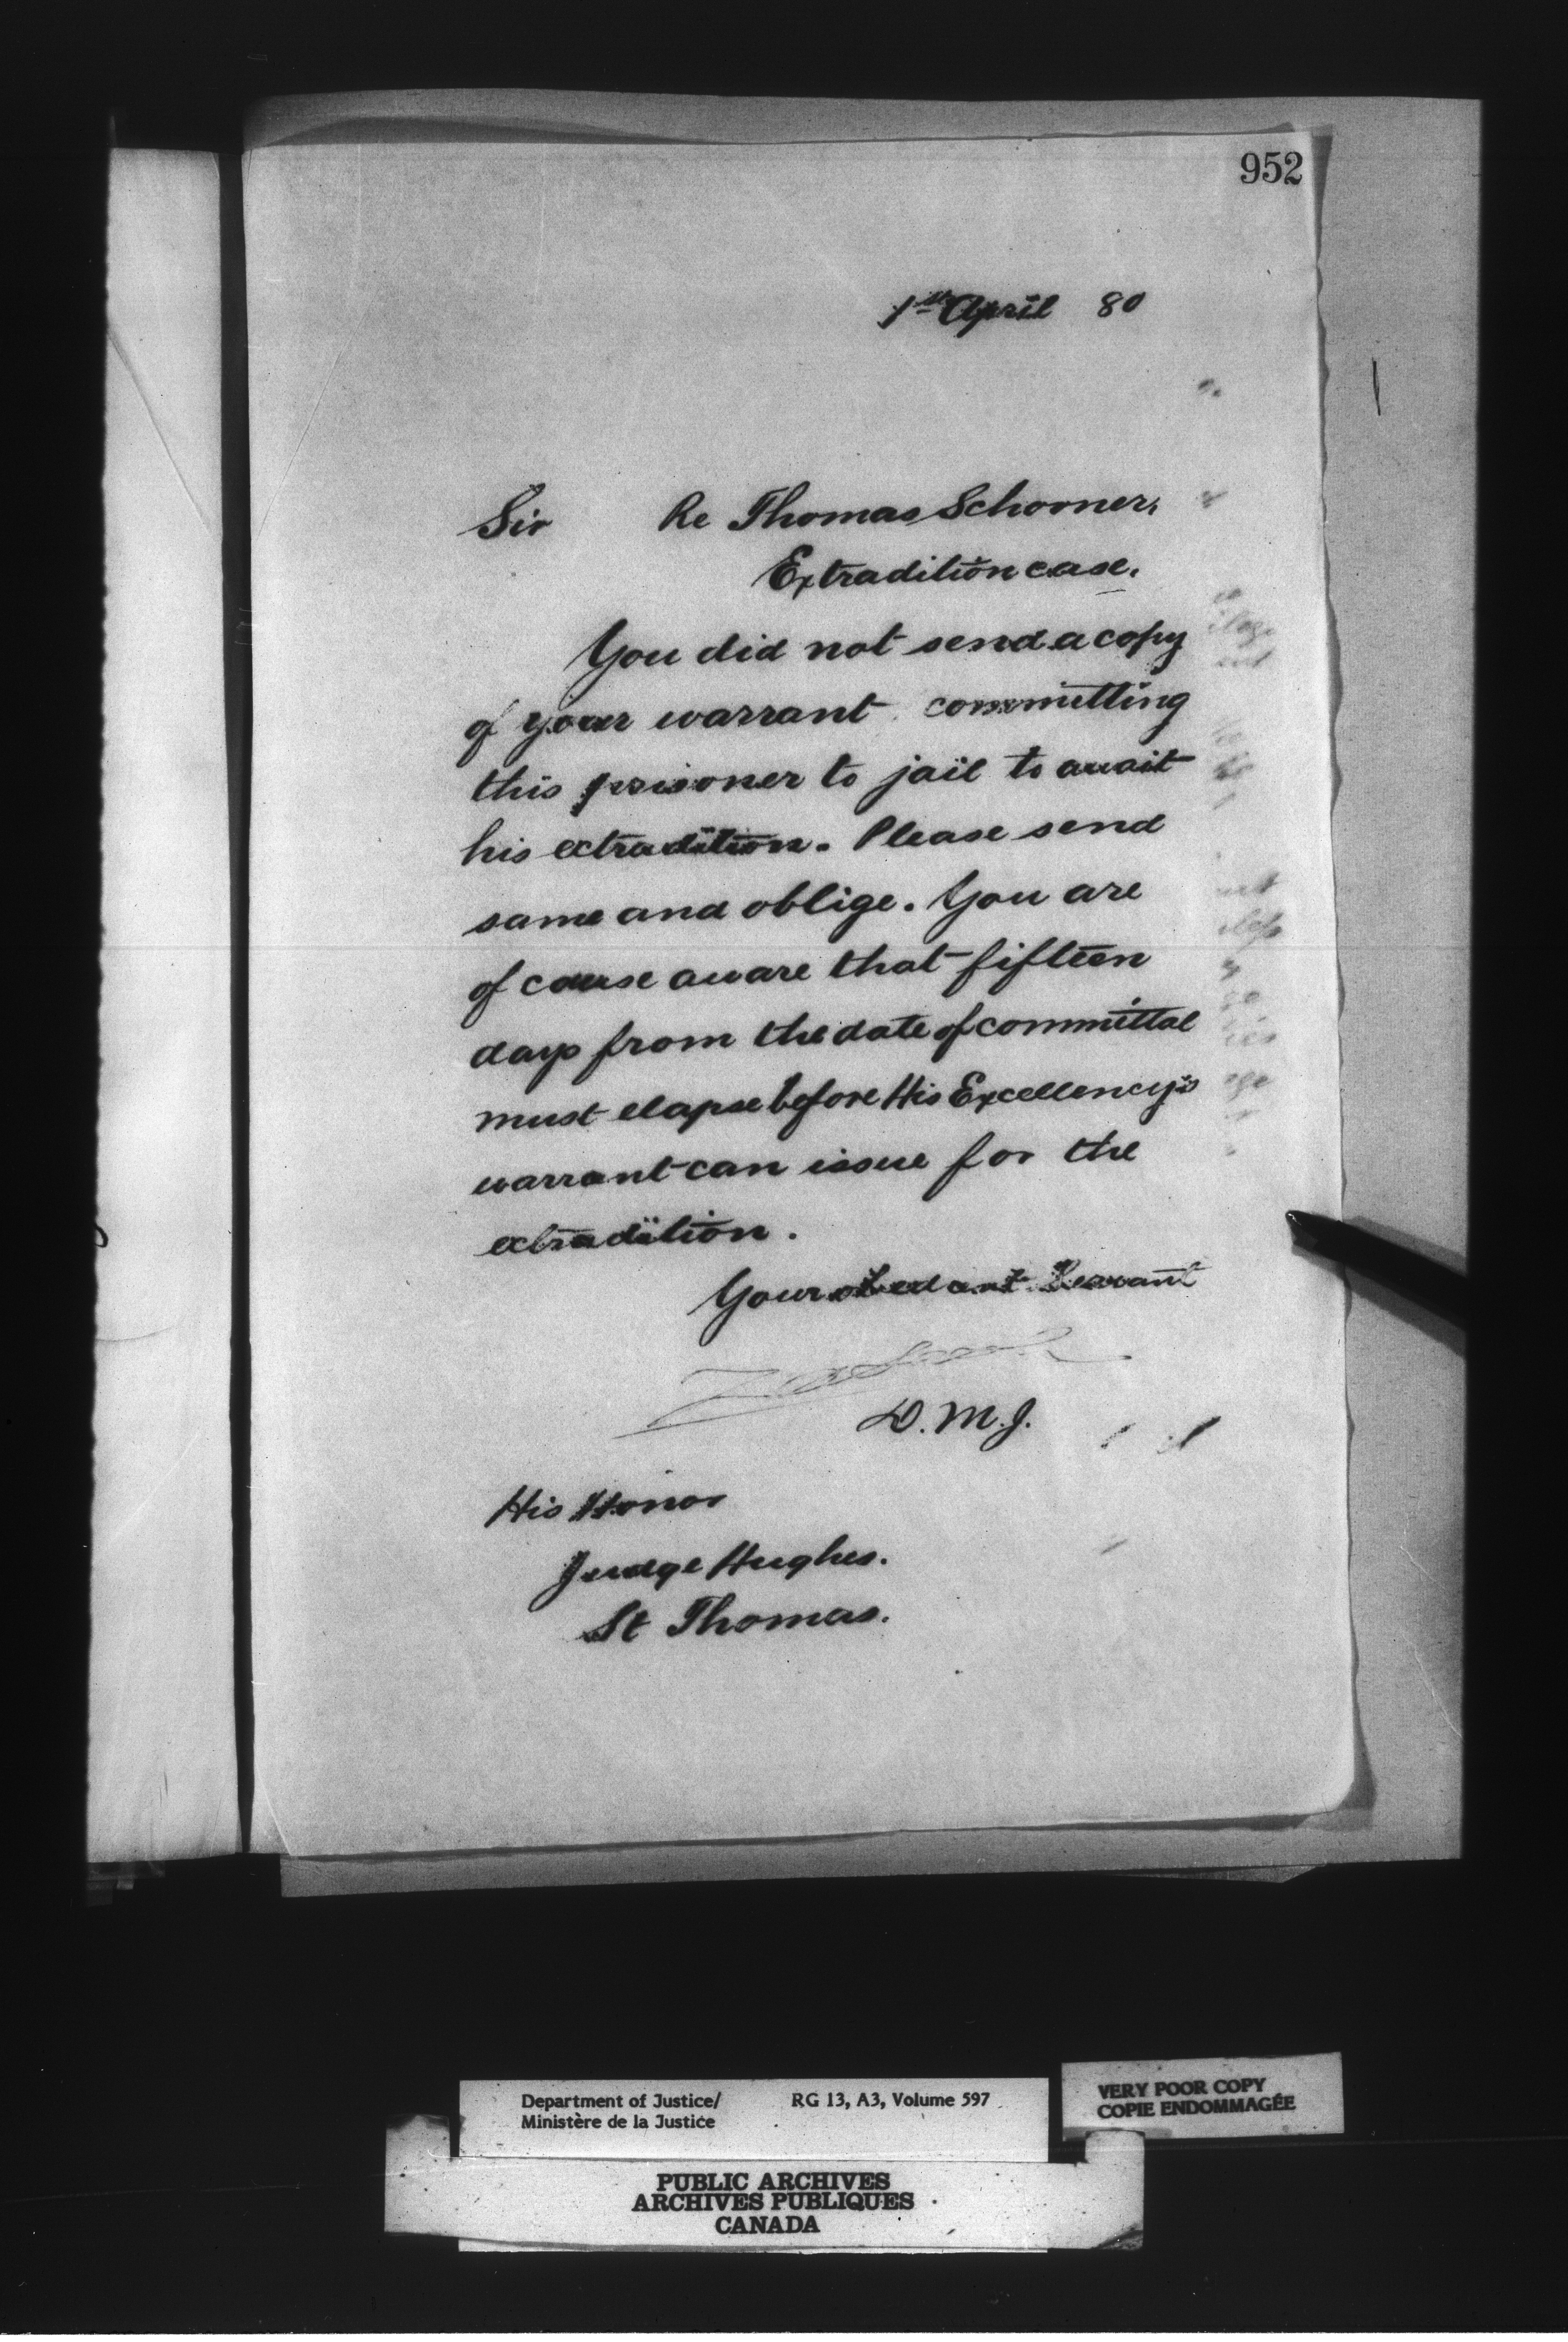 952
1st April 80
Sir Re Thomas Schooner,
Extradition case.
You did not send a copy
of your warrant committing
this prisoner to jail to await
his extradition. Please send
same and oblige. You are
of course aware that fifteen
days from the date of committal
must elapse before His Excellency's
warrant can issue for the
extradition.
Your obedient Servant
D. M. J.
His Honor
Judge Hughes.
St Thomas.
Department of Justice/ RG 13, A3, Volume 597
Ministère de la Justice
VERY POOR COPY
COPIE ENDOMMAGÉE
PUBLIC ARCHIVES
ARCHIVES PUBLIQUES
CANADA